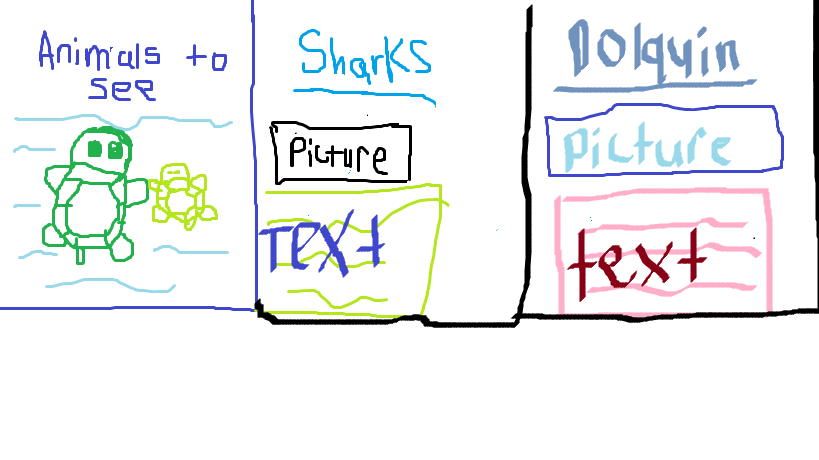 Animals to
see
Sharks
Picture
Text
Dolquin
picture
text